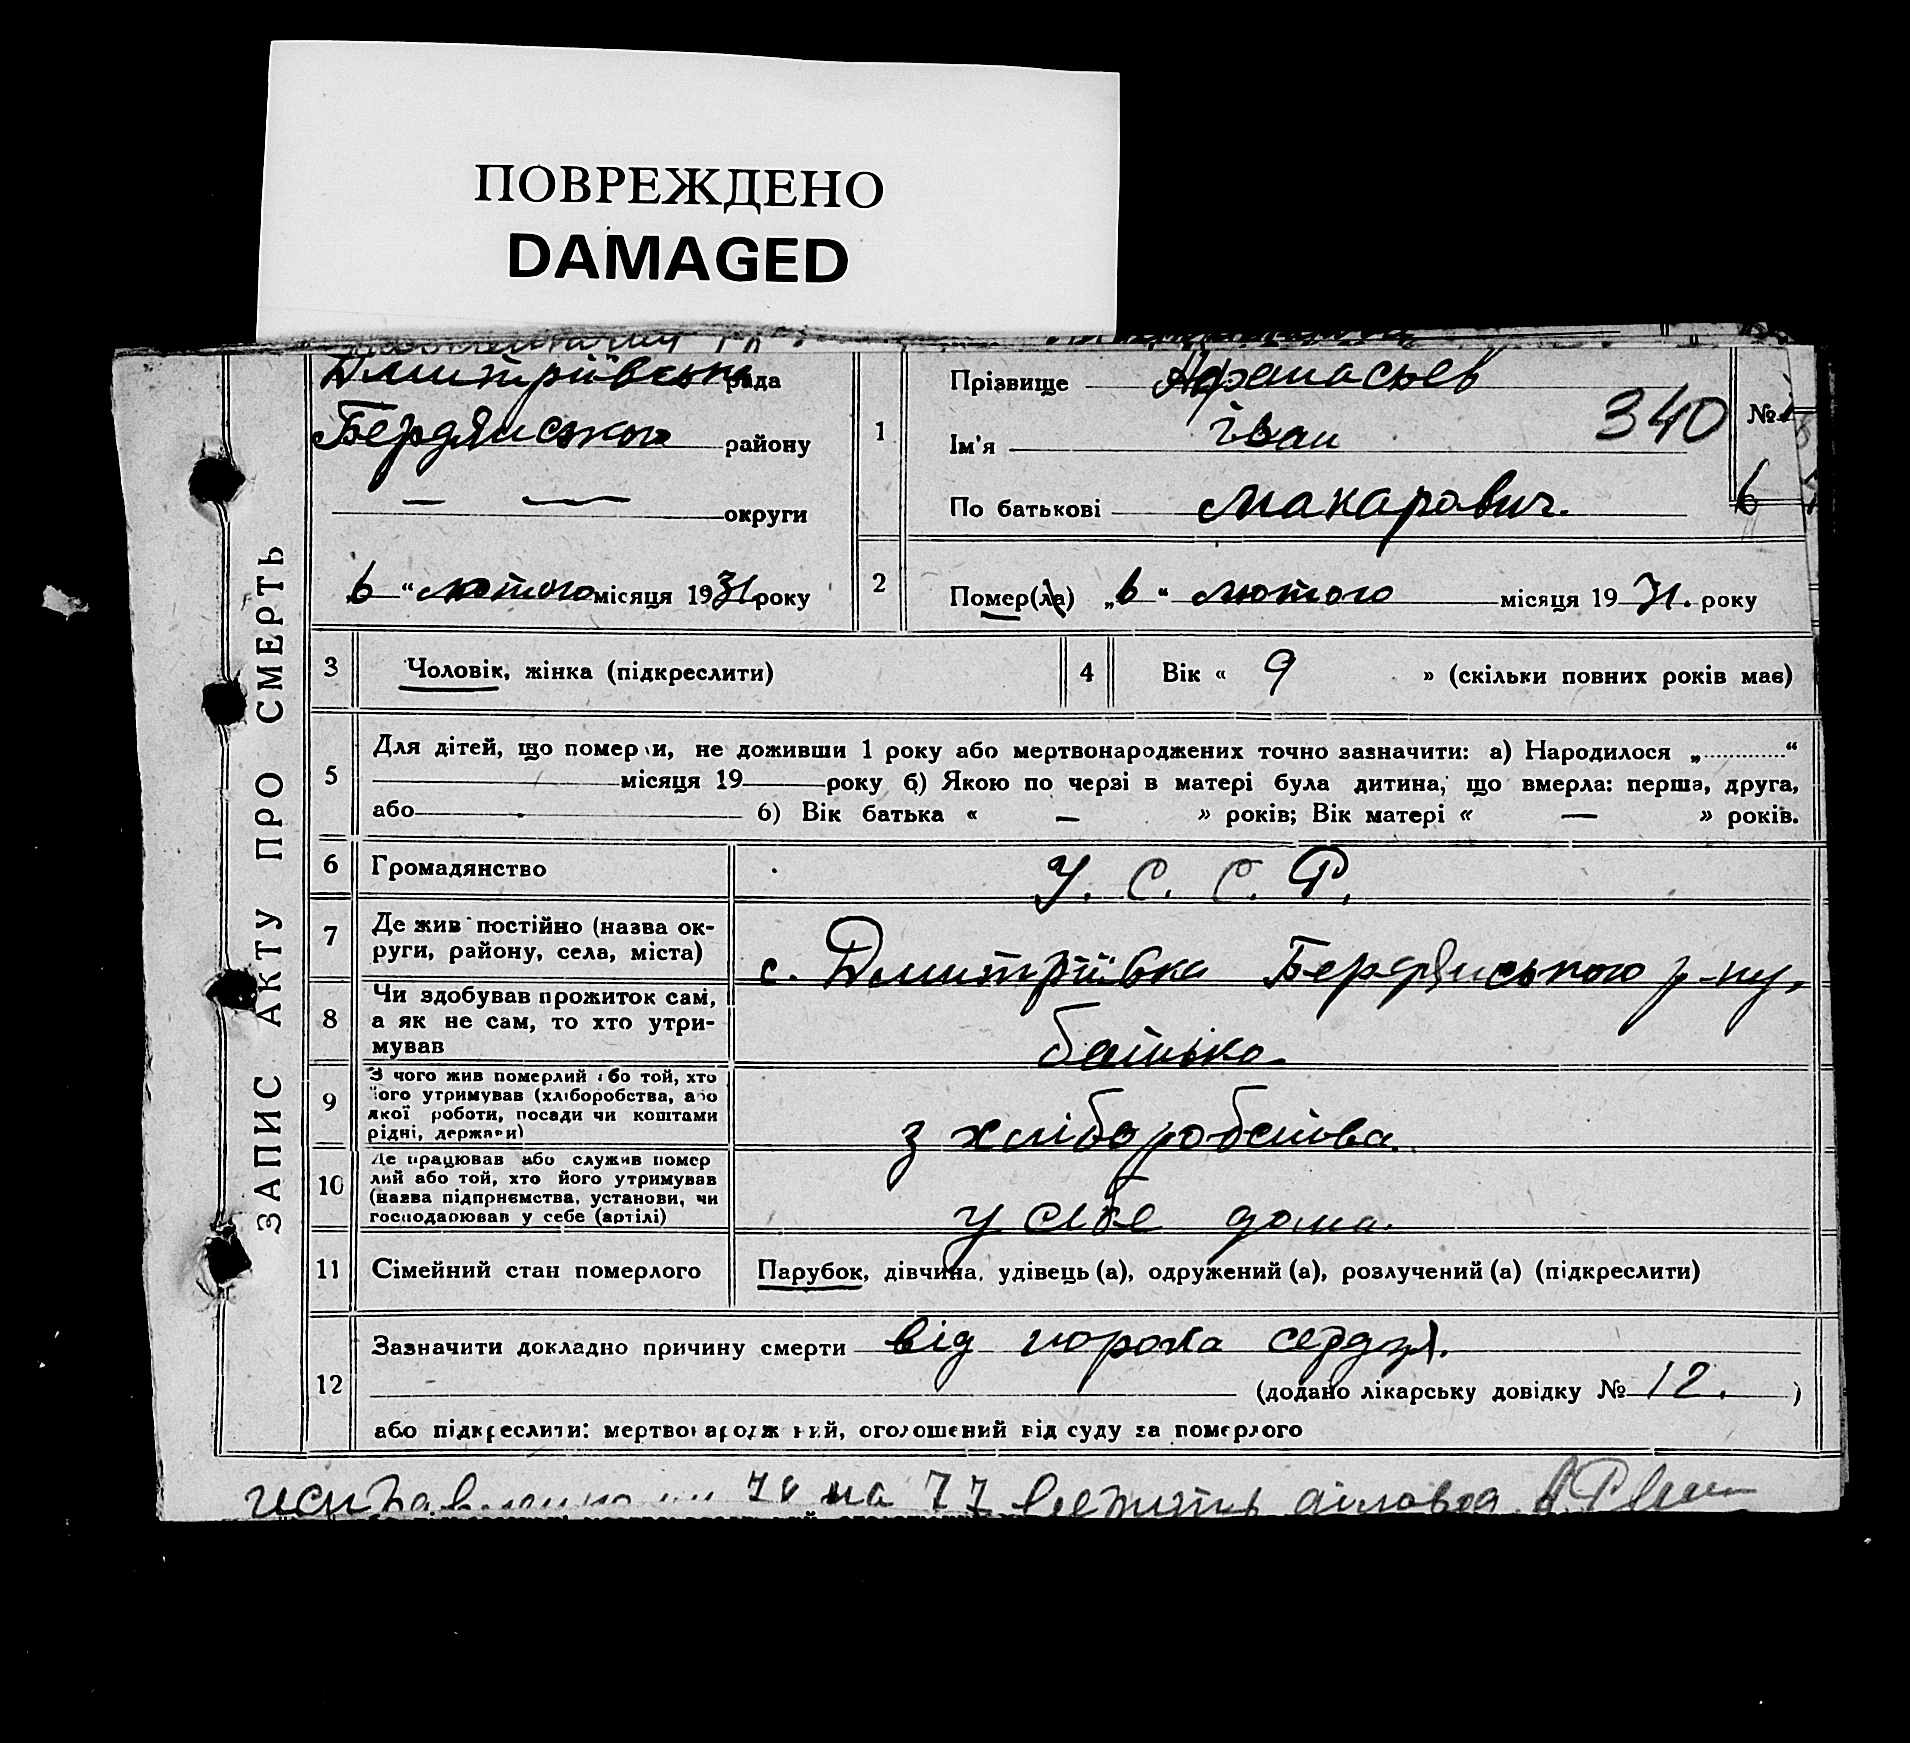 ПОВРЕЖДЕНО
DAMAGED
ЗАПИС АКТУ ПРО СМЕРТЬ
Дмитріївська рада
Бердянського району
— — округи
6 “ лютого місяця 1931 року
1
Прізвище Афанасьев
Ім'я Іван
340
№
По батькові Макарович.
6
2
Помер(ла) „6“ лютого місяця 1931. року
3 Чоловік, жінка (підкреслити)
4 Вік « 9 » (скільки повних років має)
5
Для дітей, що померли, не доживши 1 року або мертвонароджених точно зазначити: а) Народилося „............“
місяця 19 року б) Якою по черзі в матері була дитина, що вмерла: перша, друга,
або 6) Вік батька « — » років; Вік матері « — » років.
6 Громадянство У. С. С. Р.
7 Де жив постійно (назва ок-
руги, району, села, міста)
с. Дмитріївка Бердянського р-ну,
8 Чи здобував прожиток сам,
а як не сам, то хто утри-
мував
батько
9 З чого жив померлий або той, хто
його утримував (хліборобства, або
якої роботи, посади чи коштами
рідні, держави)
з хліборобства.
10 Де працював або служив помер
лий або той, хто його утримував
(назва підприємства, установи, чи
господарював у себе (артілі)
у себе дома.
11 Сімейний стан померлого Парубок, дівчина, удівець (а), одружений (а), розлучений (а) (підкреслити)
12
Зазначити докладно причину смерти від порока сердця.
(додано лікарську довідку № 12. )
або підкреслити: мертвонароджений, оголошений від суду за померлого
на 77